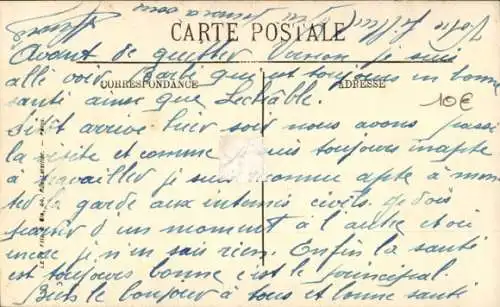 CARTE POSTALE
Avant de quitter Vierzon je suis
allé voir Barbé qui est toujours en bonne
CORRESPONDANCE
ADRESSE
santé ainsi que Lechâble.
10€
arrivé hier soir nous avons passé
la visite et comme je suis toujours inapte
à travailler je suis reconnu apte à mon
ter la garde aux internés civils je dois
partir d'un moment à l'autre et où
encore je n'en sais rien. Enfin la santé
est toujours bonne c'est le principal.
le bonjour à tous et bonne santé
Votre fils